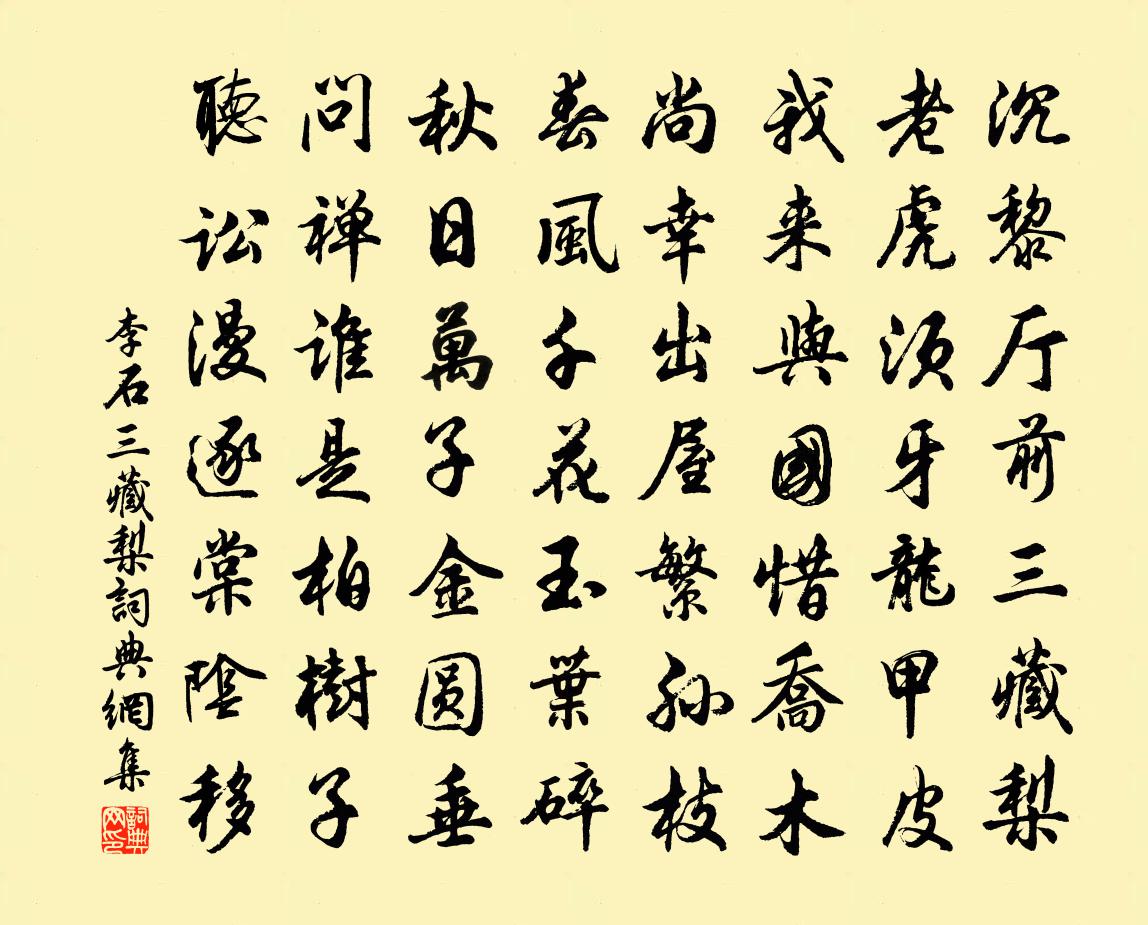 沉黎厅前三藏梨
老虎须牙龍甲皮
我来與國惜喬木
尚幸出屋繁孙枝
春風千花玉葉碎
秋日萬子金圆垂
問禅誰是柏樹子
聽訟漫逐棠陰移
李石三藏梨詞典網集
詞典网印